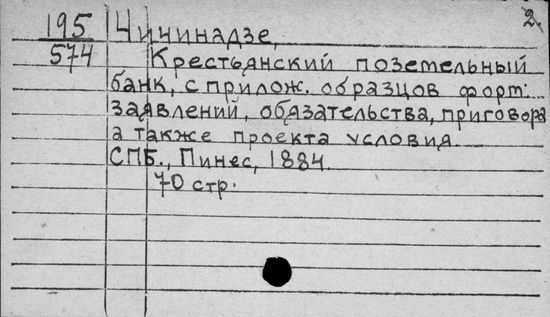 195 Чичинадзе, 2.
574 Крестьянский поземельный
банк, с прилож. образцов форт:
заявлений, обязательства, приговора
а также проекта условия
СПБ., Пинес, 1884
70 стр.